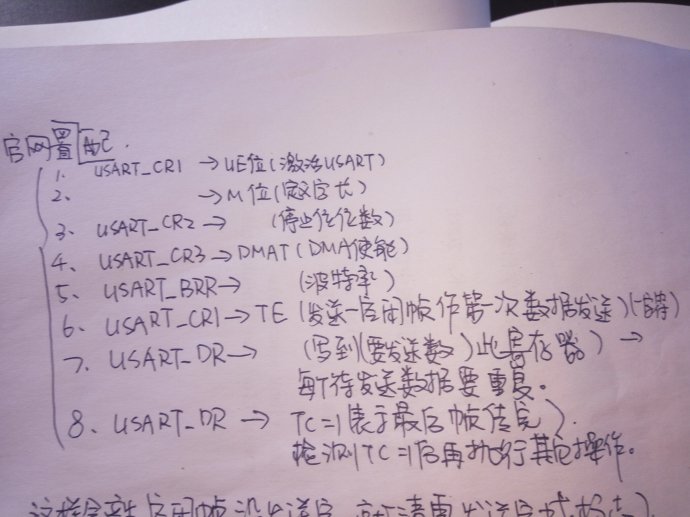 官网置配.
1. USART_CR1 →UE位(激活USART)
2. →M位(定义字长)
3、USART_CR2→ (停止位位数)
4、USART_CR3→DMAT(DMA使能)
5、USART_BRR→ (波特率)
6、USART_CR1→TE (发送一空闲帧作第一次数据发送)
7、USART_DR→ (写到(要发送数)此寄存器)→
每个待发送数据要重复。
8、USART_DR → TC=1(表示最后帧传完).
检测TC=1后再执行其它操作。